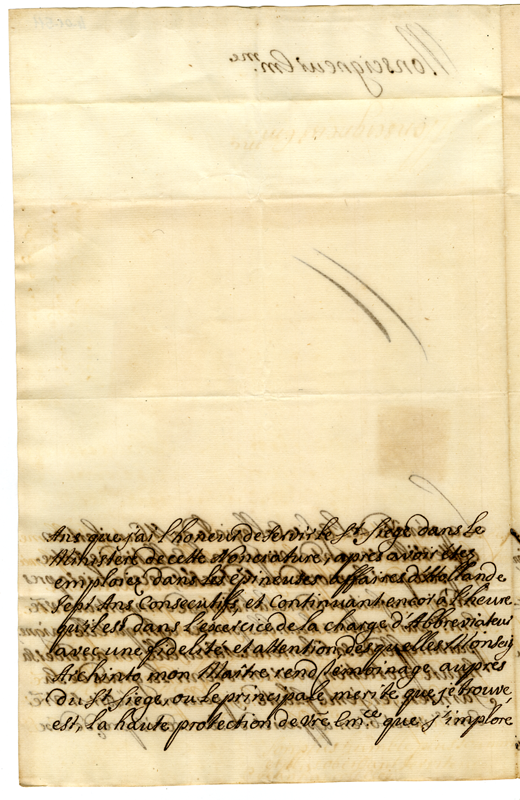 Ans que j'ai l'honeur de servir le St. Siege dans le
Ministere de cette Nonciature, aprés avoir étés
emploiez dans les épineuses affaires d'Hollande
sept Ans Consecutifs, et Continuant encor à l'heure
qu'il est dans l'exercice de la charge d'Abbreviateur
avec une fidelité et attention, desquelles Monseig
Archinto mon Maître rend témoinage auprés
du St. Siege, ou le principale merite que je trouve
est, la haute protection de vre. Em.ce que j'imploré